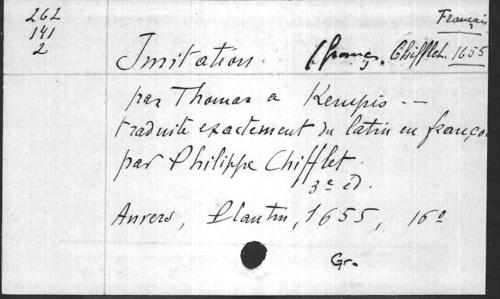 262
141
2
Français
Imitation. (franç. Chifflet. 1655
par Thomas a Kempis --
traduite exactement du latin en françois
par Philippe Chifflet.
3e éd.
Anvers, Plantin, 1655, 16º
Gr.